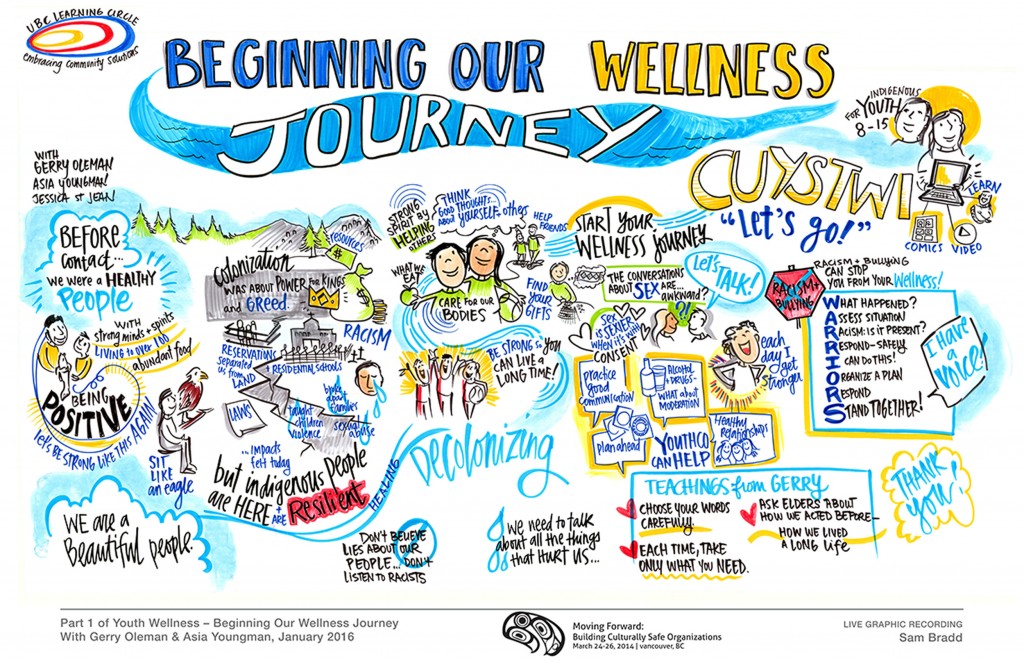 UBC LEARNING CIRCLE
embracing community solutions
BEGINNING OUR WELLNESS
JOURNEY
FOR INDIGENOUS
YOUTH
8-15
WITH
GERRY OLEMAN
ASIA YOUNGMAN
JESSICA ST JEAN
CUYSTWI
"LET'S GO!"
LEARN
COMICS
VIDEO
BEFORE
CONTACT...
we were a HEALTHY
PEOPLE
WITH
strong minds + spirits
LIVING to OVER 100
abundant food
BEING
POSITIVE
LET'S BE STRONG LIKE THIS AGAIN
SIT
LIKE
AN eagle
WE ARE A
Beautiful people.
resources
COLONIZATION
WAS ABOUT POWER FOR KINGS
and GREED.
RACISM
RESERVATIONS
separated
us from
LAND
+ RESIDENTIAL SCHOOLS
broke
apart
families
LAWS
taught
children
violence
sexual
abuse
...impacts
felt today
but indigenous people
are HERE + ARE Resilient
HEALING
STRONG
SPIRIT BY
HELPING
OTHERS
THINK
GOOD THOUGHTS...
ABOUT YOURSELF, others
HELP
FRIENDS
WHAT WE
EAT
CARE FOR OUR
BODIES
FIND
YOUR
GIFTS
BE STRONG SO YOU
CAN LIVE A
LONG TIME!
Decolonizing
DON'T BELIEVE
LIES ABOUT OUR
PEOPLE... DON'T
LISTEN TO RACISTS
we need to talk
about all the things
that HURT US...
START YOUR
WELLNESS JOURNEY
THE CONVERSATIONS
ABOUT SEX ARE...
awkward?
Let's
TALK!
??
SEX
IS SEXIER
WHEN IT'S WITH
CONSENT
each
day I
get
stronger
practice
good
communication
ALCOHOL
+ DRUGS-
WHAT ABOUT
MODERATION
plan ahead
YOUTHCO
CAN HELP
Healthy
Relationships
RACISM +
BULLYING
RACISM + BULLYING
CAN STOP
YOU FROM YOUR Wellness!
WHAT HAPPENED?
ASSESS SITUATION
RACISM: IS IT PRESENT?
RESPOND-SAFELY
I CAN DO THIS!
ORGANIZE A PLAN
RESPOND
STAND TOGETHER!
I HAVE
a VOICE!
TEACHINGS from GERRY
CHOOSE YOUR WORDS
CAREFULLY.
EACH TIME, TAKE
ONLY WHAT YOU NEED.
ASK ELDERS ABOUT
HOW WE ACTED BEFORE-
HOW WE LIVED
A LONG life
THANK
YOU!
Part 1 of Youth Wellness – Beginning Our Wellness Journey
With Gerry Oleman & Asia Youngman, January 2016
Moving Forward:
Building Culturally Safe Organizations
March 24-26, 2014 | vancouver, BC
LIVE GRAPHIC RECORDING
Sam Bradd